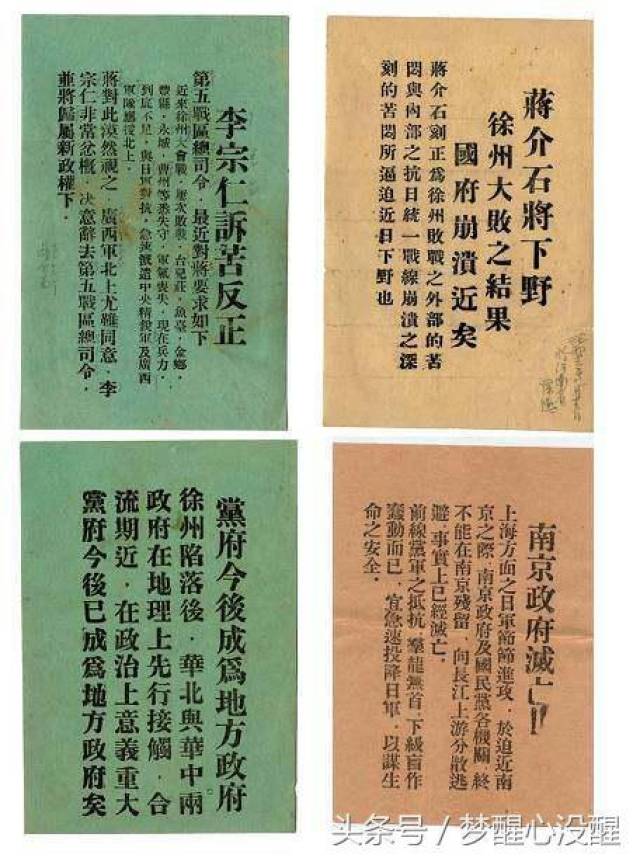 李宗仁訴苦反正
第五戰區總司令．最近對蔣要求如下
近來徐州大會戰．屢次敗戰．台兒莊．魚臺．金鄉．
豐縣．永城．曹州等悉失守．軍氣喪失．現在兵力．
到底不足．與日軍對抗．急速派遣中央精銳軍及廣西
軍隊應援北上．
蔣對此漠然視之．廣西軍北上尤難同意．李
宗仁非常忿慨．決意辭去第五戰區總司令．
並將歸屬新政權下．
蔣介石將下野
徐州大敗之結果
國府崩潰近矣
蔣介石刻正爲徐州敗戰之外部的苦
悶與內部之抗日統一戰線崩潰之深
刻的苦悶所逼迫近日下野也
黨府今後成爲地方政府
徐州陷落後．華北與華中兩
政府在地理上先行接觸．合
流期近．在政治上意義重大
黨府今後已成爲地方政府矣
南京政府滅亡!!
上海方面之日軍節節進攻．於迫近南
京之際．南京政府及國民黨各機關．終
不能在南京殘留．向長江上游分散逃
避．事實上已經滅亡．
前線黨軍之抵抗．羣龍無首．下級盲作
蠢動而已．宜急速投降日軍．以謀生
命之安全．
头条号 / 梦醒心没醒